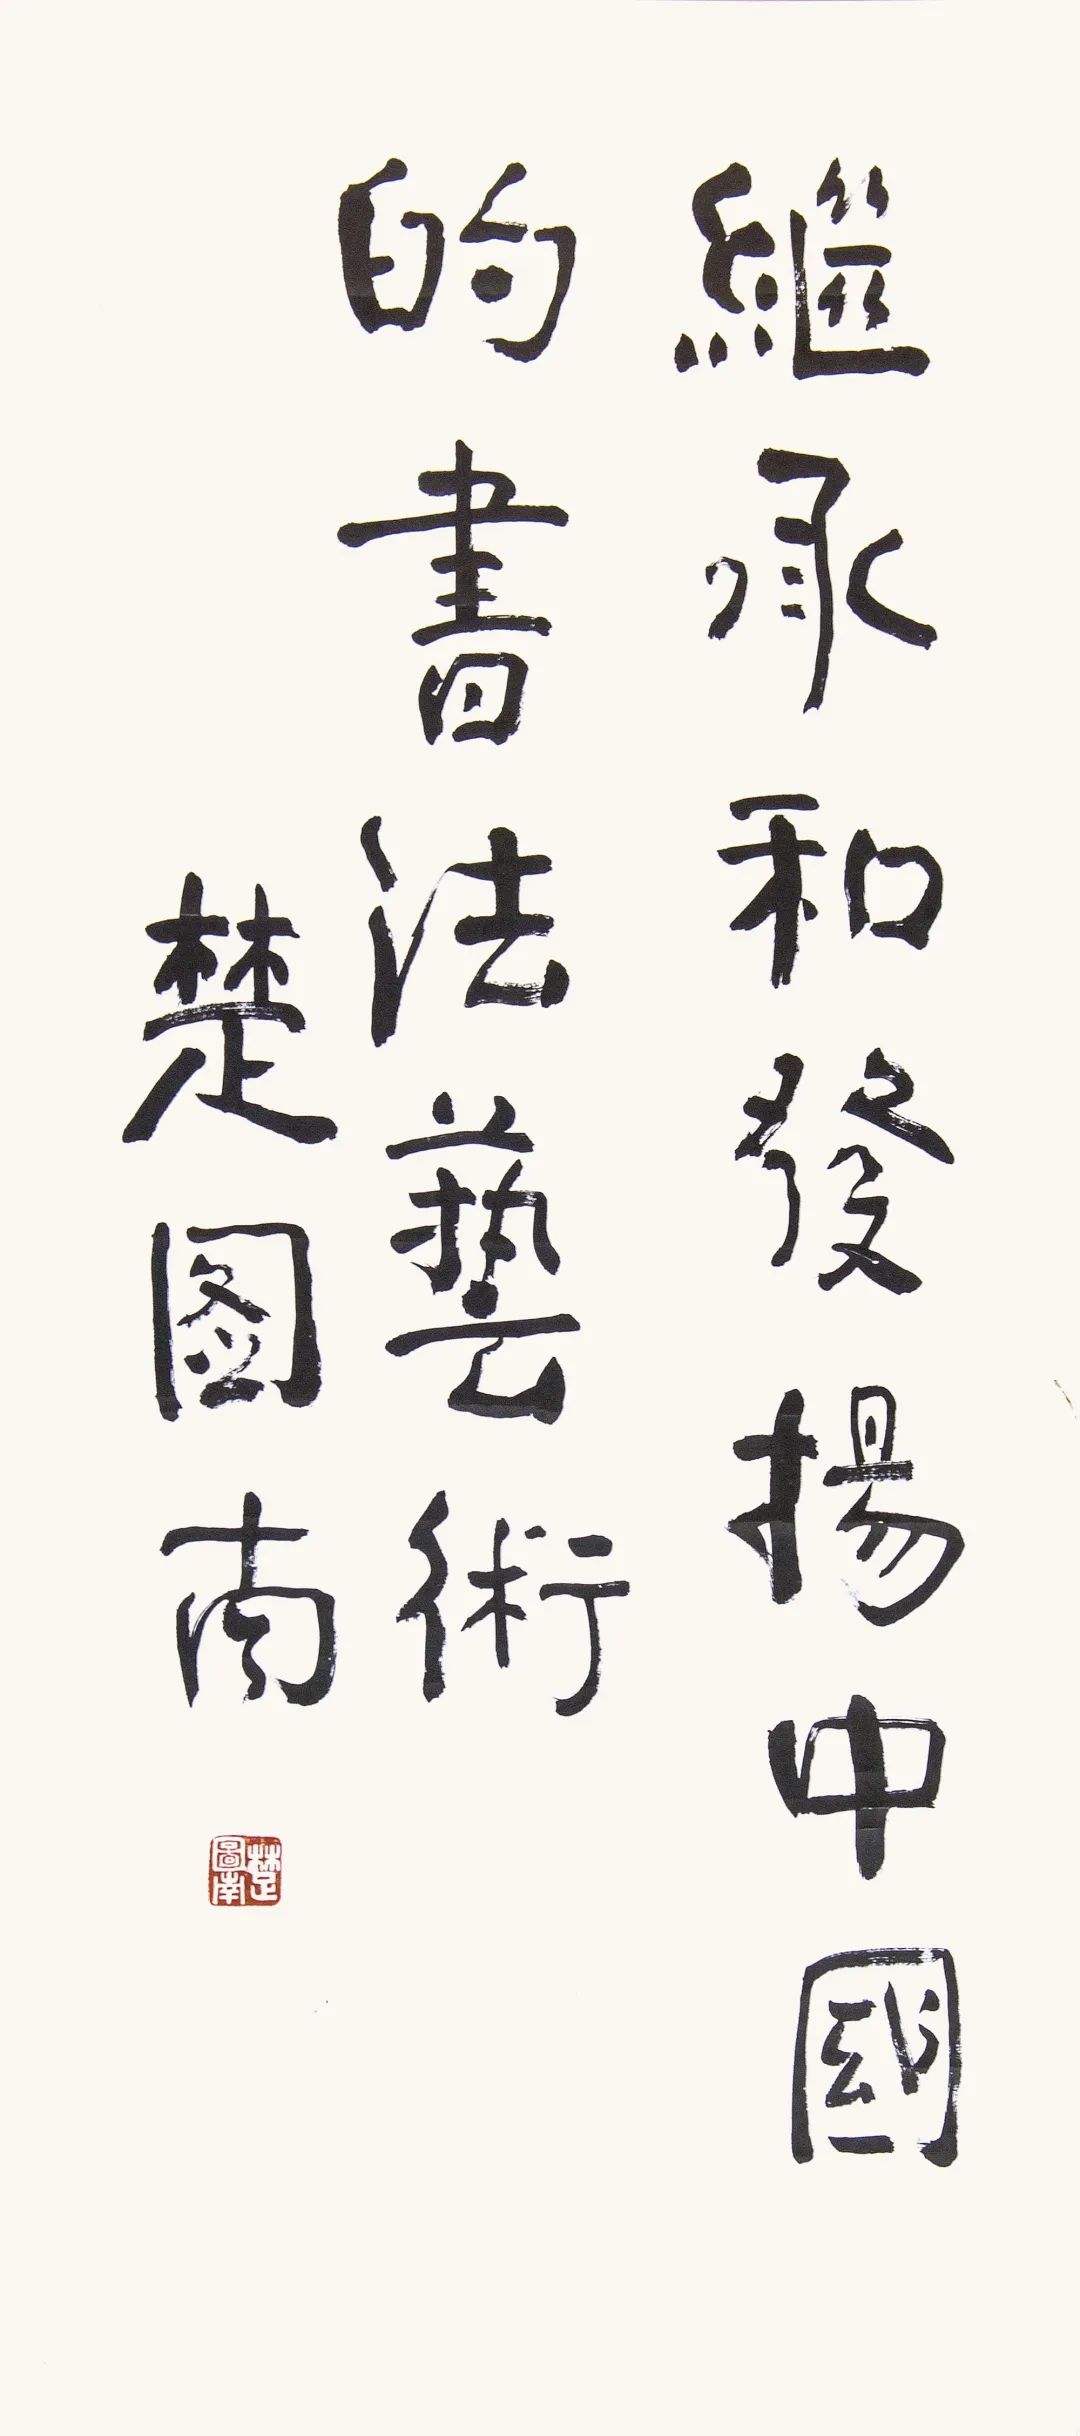 繼承和發揚中國
的書法藝術
楚图南
楚圖南